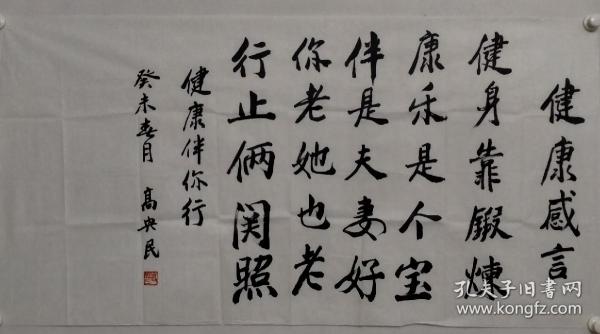 健康感言
健身靠鍛煉
康乐是个宝
伴是夫妻好
你老她也老
行止俩関照
健康伴你行
癸未春月 高 民
孔夫子旧书网
www.kongfz.com